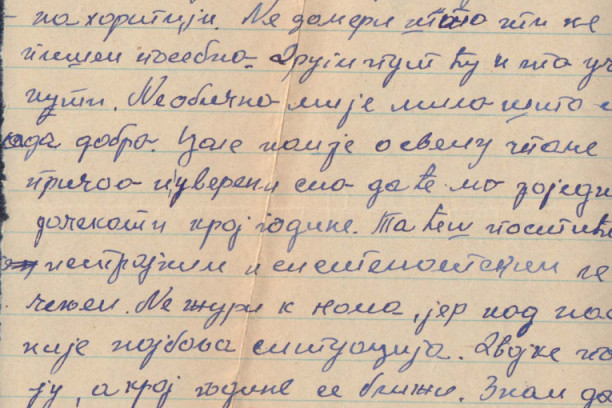 на хоритији. Не замери што ти не
пишем посебно. Други пут ћу и то уч
пути. Необично ми је мило што с
да добро. Цале нам је о свему
причао и уверени смо да ће мо заједн
дочекати крај године. Та ћеш постић
несторјним и систематским
чењем. Не жури к нама, јер код нас
није најбоља ситуација. Двојке па
ју, а крај године се ближи. Знам да